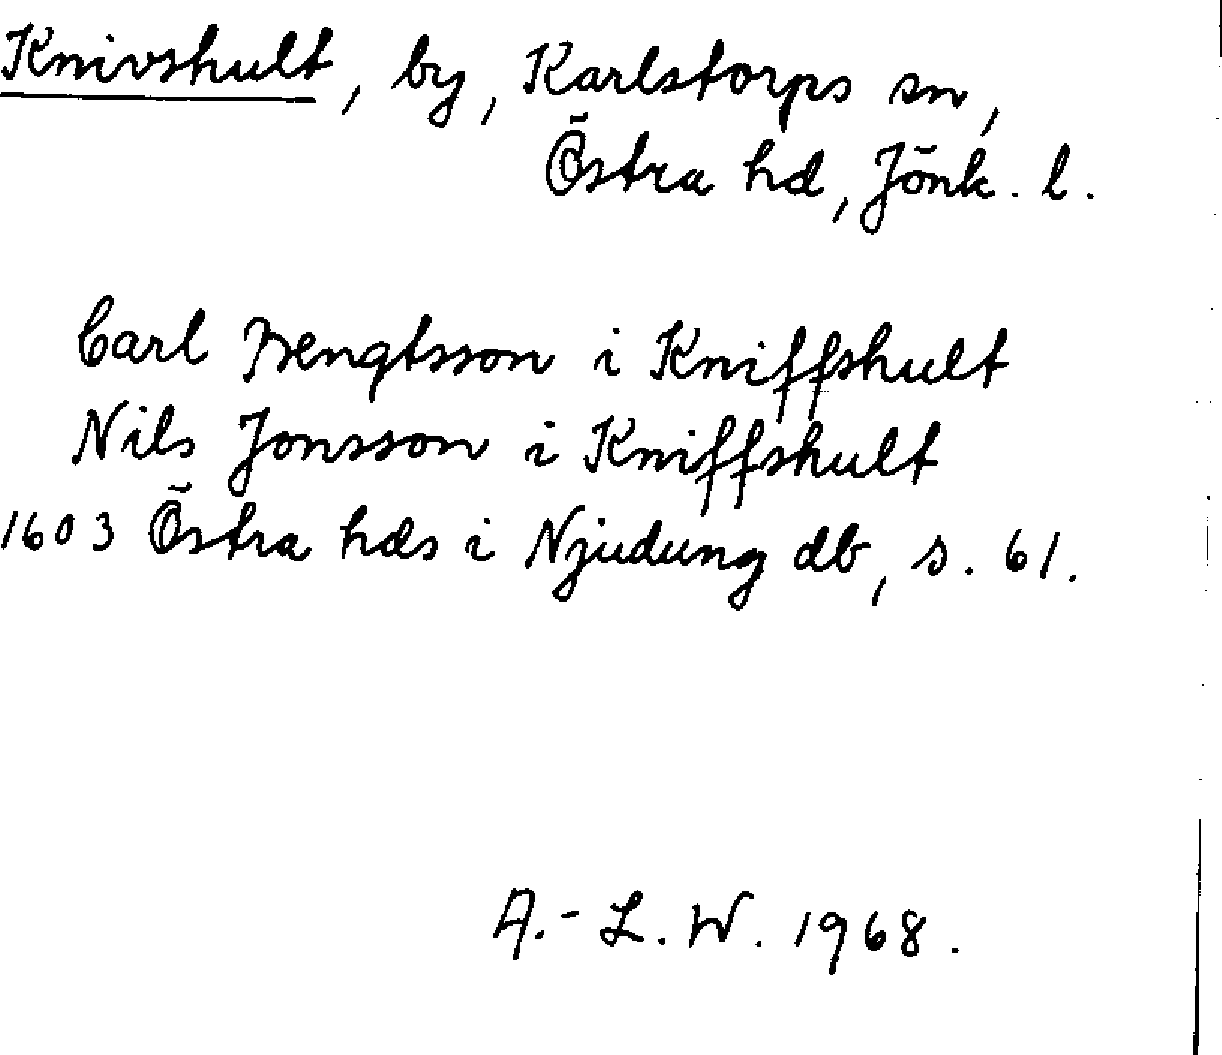 Knivshult, by, Karlstorps sn,
Östra hd, Jönk. l.
Carl Bengtsson i Kniffshult
Nils Jonsson i Kniffshult
1603 Östra hds i Njudung db, s. 61.
A.-L. W. 1968.